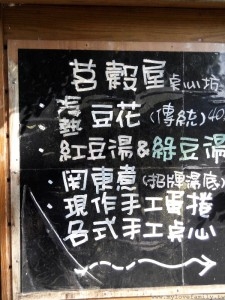 莒穀屋 桌心坊
· 冷熱 豆花(傳統)40
· 紅豆湯&綠豆湯
· 関東煮(招牌湯底)
· 現作手工蛋捲
各式手工桌心